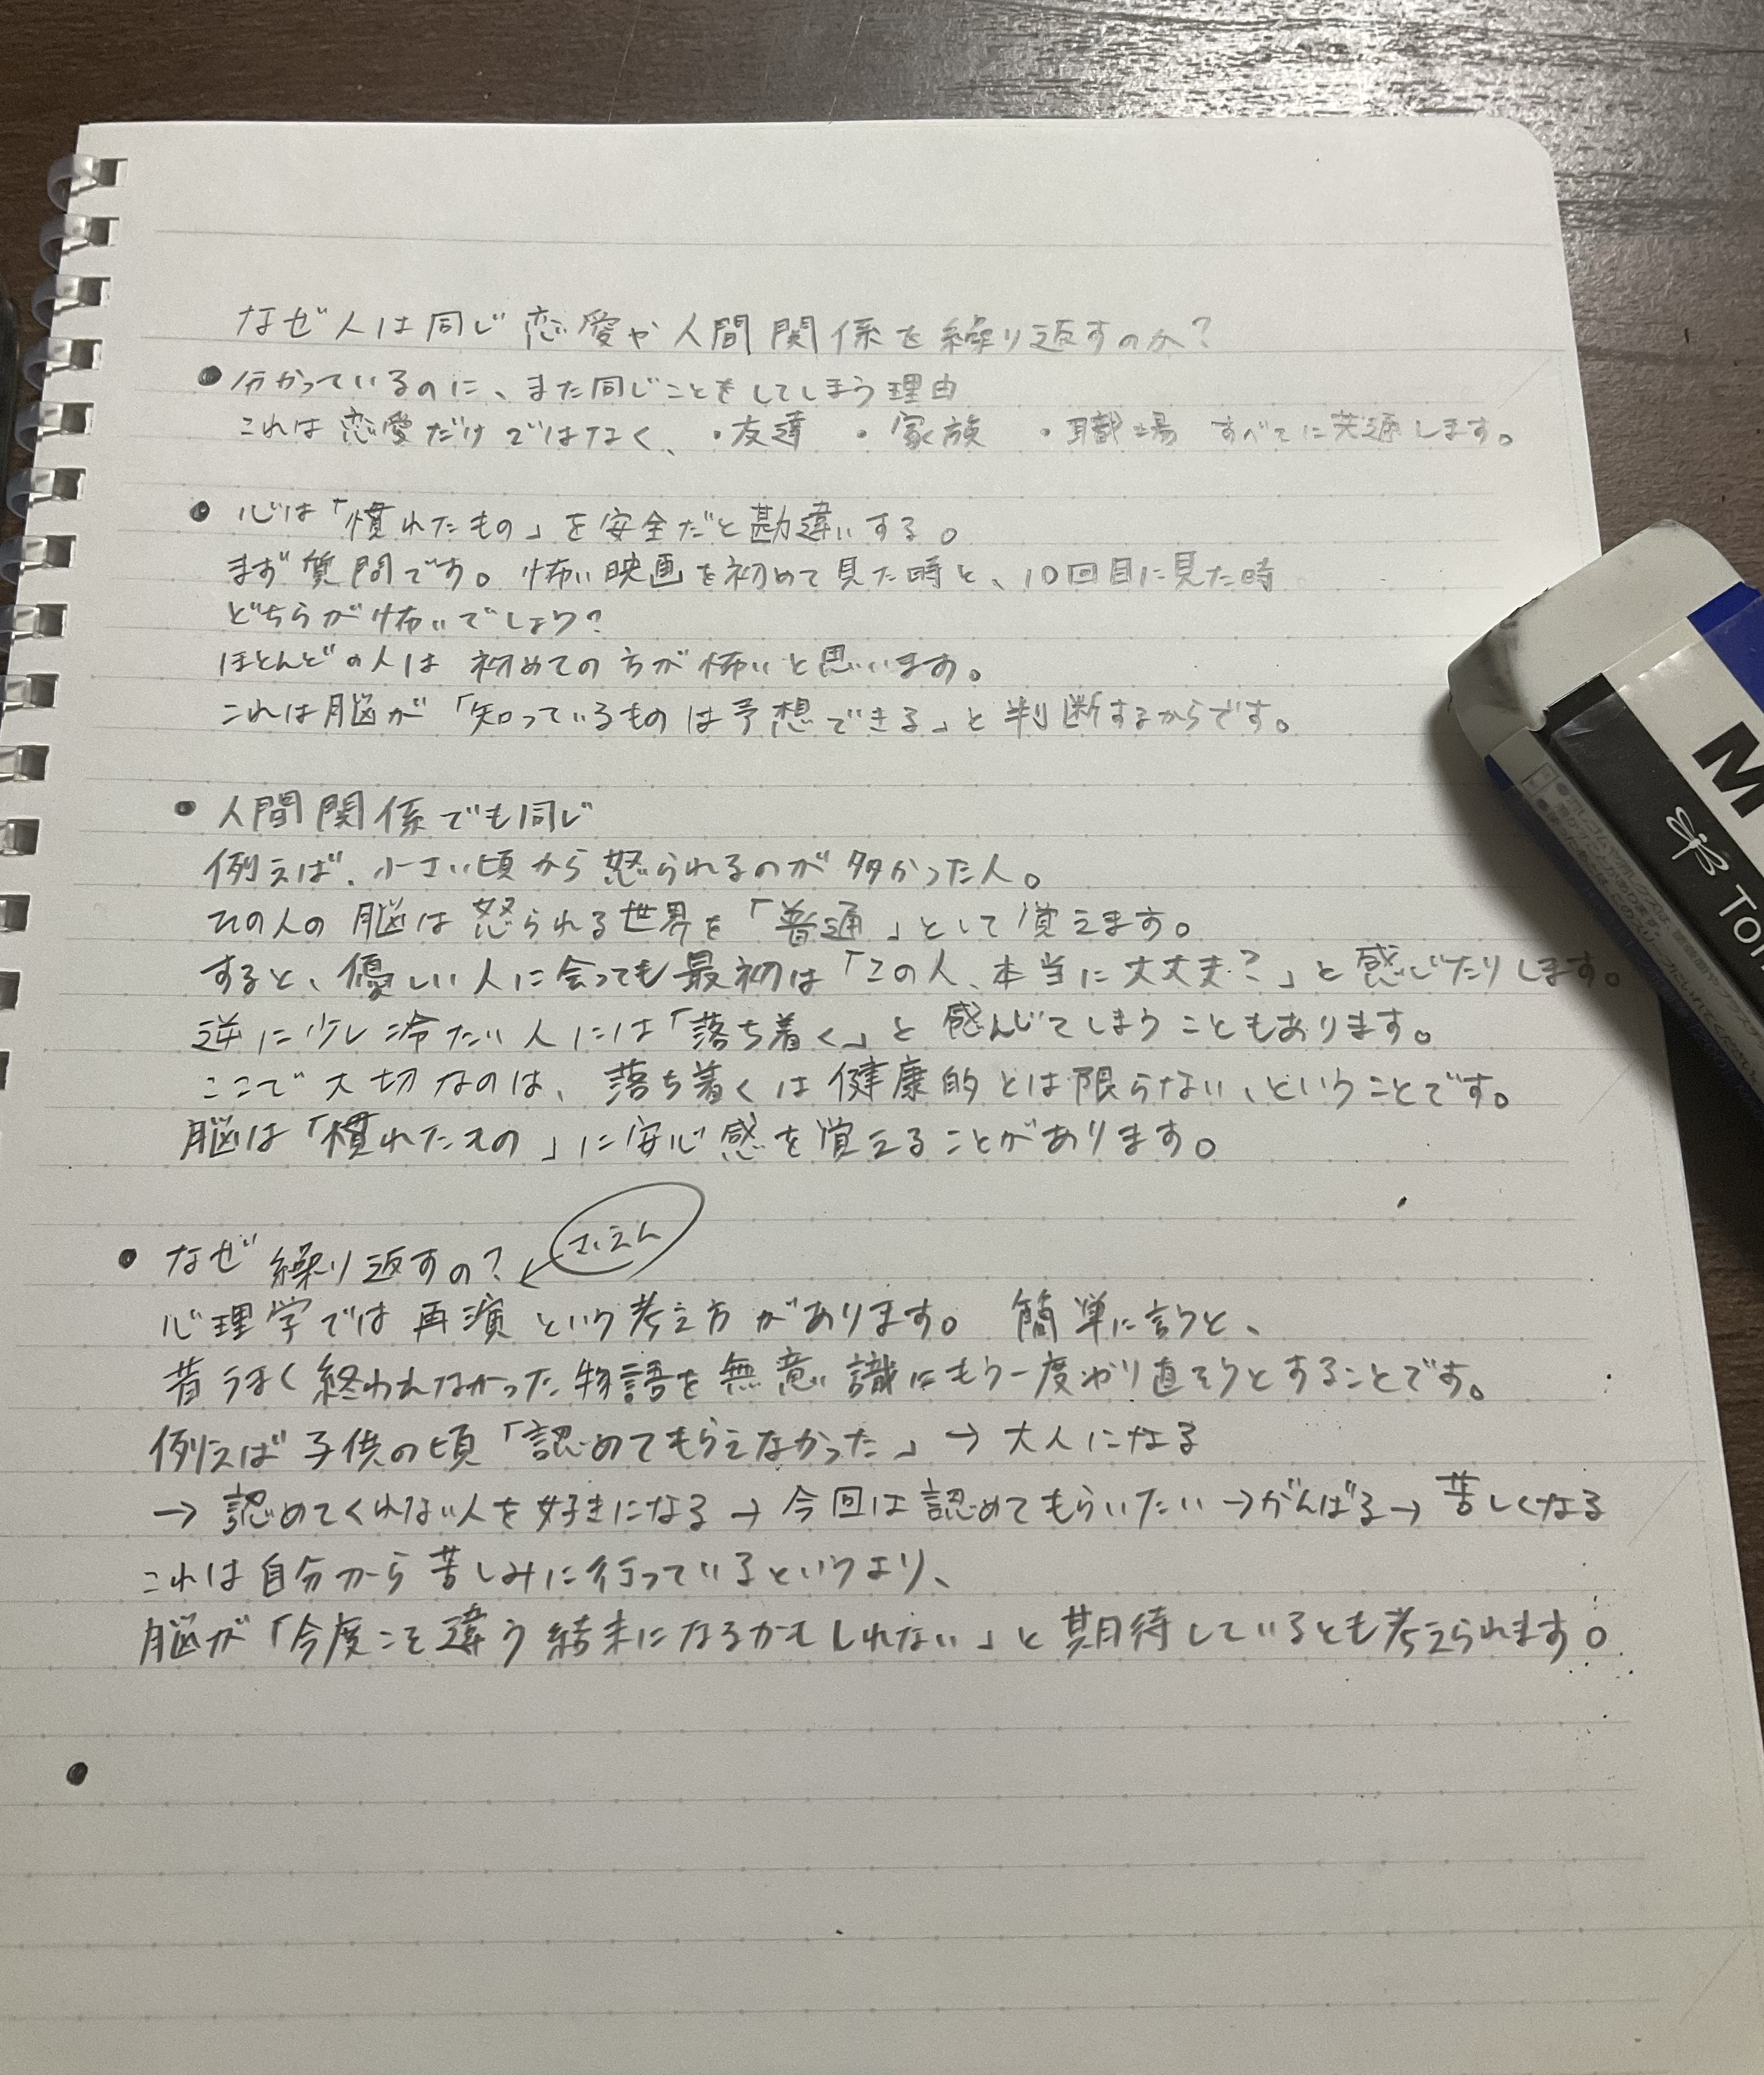 なぜ人は同じ恋愛や人間関係を繰り返すのか?
● 分かっているのに、また同じことをしてしまう理由
これは恋愛だけではなく、・友達 ・家族 ・職場 すべてに共通します。
● 心は「慣れたもの」を安全だと勘違いする。
まず質問です。怖い映画を初めて見た時と、10回目に見た時
どちらが怖いでしょう?
ほとんどの人は初めての方が怖いと思います。
これは脳が「知っているものは予想できる」と判断するからです。
● 人間関係でも同じ
例えば、小さい頃から怒られるのが多かった人。
その人の脳は怒られる世界を「普通」として覚えます。
すると、優しい人に会っても最初は「この人、本当に大丈夫?」と感じたりします。
逆に少し冷たい人には「落ち着く」と感んじてしまうこともあります。
ここで大切なのは、落ち着くは健康的とは限らない、ということです。
脳は「慣れたもの」に安心感を覚えることがあります。
● なぜ繰り返すの?
さいえん
心理学では再演という考え方があります。簡単に言うと、
昔うまく終われなかった物語を無意識にもう一度やり直そうとすることです。
例えば子供の頃「認めてもらえなかった」→大人になる
→認めてくれない人を好きになる→今回は認めてもらいたい→がんばる→苦しくなる
これは自分から苦しみに行っているというより、
脳が「今度こそ違う結末になるかもしれない」と期待しているとも考えられます。
●
M
Tom